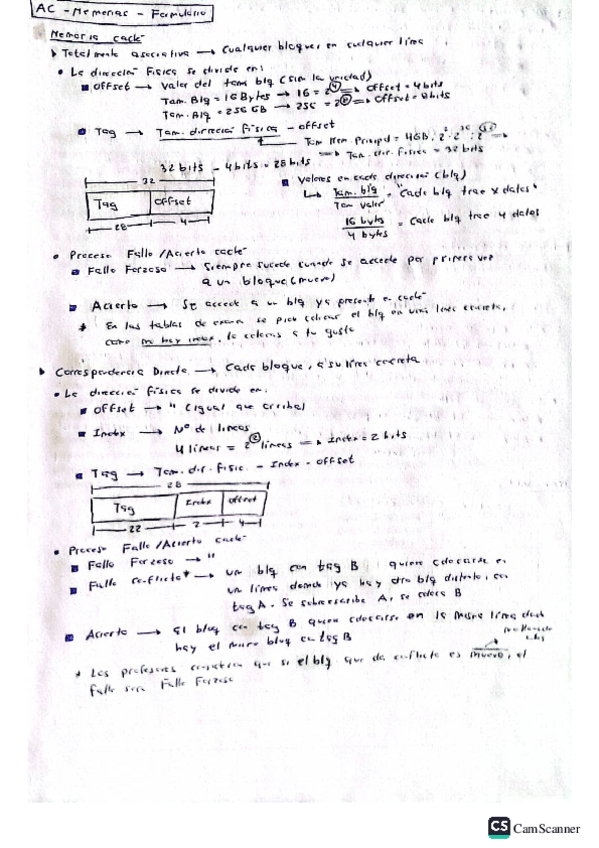 AC - Memorias - Formulario
Memoria caché
Totalmente asociativa → Cualquier bloque en cualquier línea
La dirección Física se divide en:
Offset → Valor del tam blq (sin la unidad)
Tam. Blq = 16 Bytes → 16 = 2^4 ⇒ Offset = 4 bits
Tam. Blq = 256 GB → 256 = 2^8 ⇒ Offset = 8 bits
Tag → Tam. dirección física - offset
Tam Mem. Principal = 4GB, 2^2 · 2^30 = 2^32 ⇒
⇒ Tam. dir. Física = 32 bits
32 bits - 4 bits = 28 bits
32
Tag Offset
28 4
Valores en cada dirección (blq)
Tam. blq / Tam valor = "Cada blq trae x datos"
16 bytes / 4 bytes = Cada blq trae 4 datos
Proceso Fallo/Acierto caché
Fallo Forzoso → Siempre sucede cuando se accede por primera vez
a un bloque (nuevo)
Acierto → Se accede a un blq ya presente en caché
* En las tablas de examen se pide colocar el blq en una línea concreta,
como no hay index, lo colocas a tu gusto
Correspondencia Directa → Cada bloque, a su línea concreta
La dirección física se divide en:
Offset → " (igual que arriba)
Index → Nº de líneas
4 líneas = 2^2 líneas ⇒ Index = 2 bits
Tag → Tam. dir. Física - Index - offset
28
Tag Index offset
22 2 4
Proceso Fallo/Acierto caché
Fallo Forzoso → "
Fallo conflicto* → un blq con tag B quiere colocarse en
un línea donde ya hay otro blq distinto, con
tag A. Se sobreescribe A, se coloca B
Acierto → El bloq con tag B quiere colocarse en la misma línea donde
hay el mismo bloq con tag B
* Los profesores consideran que si el blq que da conflicto es nuevo, el
fallo será Fallo Forzoso
CS CamScanner